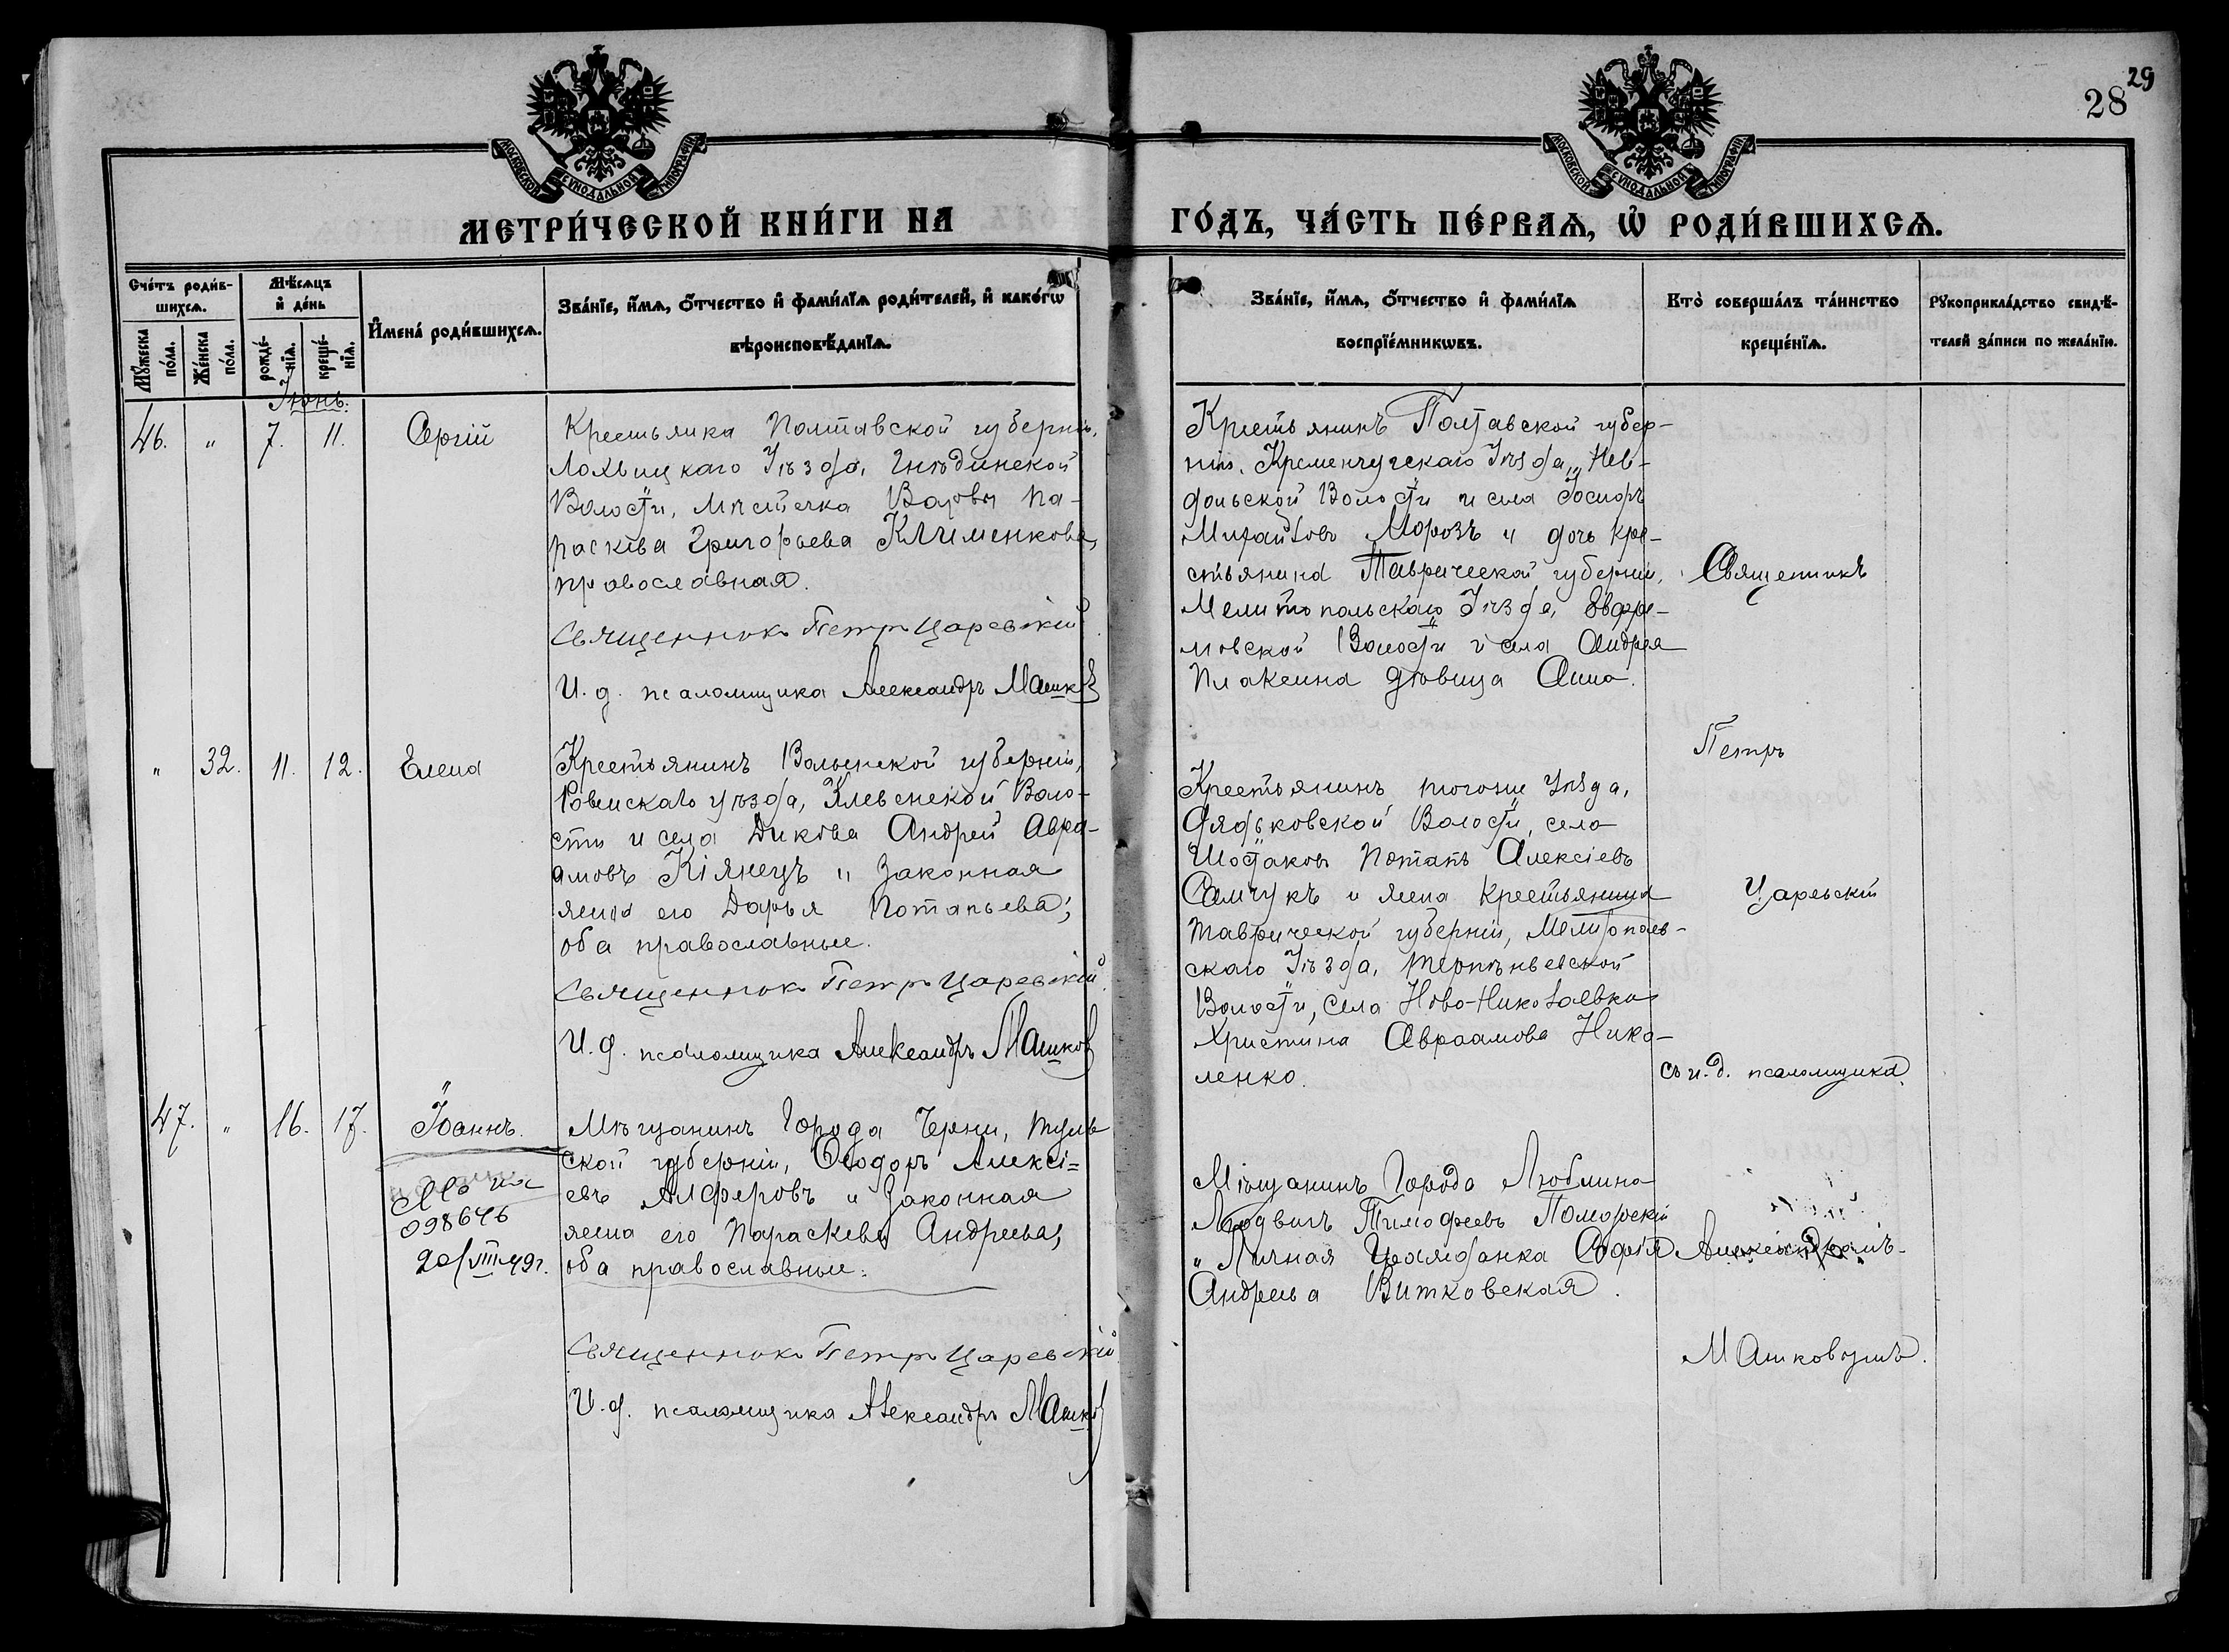 29
28
МОСКОВСКОЙ СѴНОДАЛЬНОЙ ТИПОГРАФІИ
МОСКОВСКОЙ СѴНОДАЛЬНОЙ ТИПОГРАФІИ
МЕТРИ́ЧЕСКОЙ КНИ́ГИ НА
ГО́ДЪ, ЧА́СТЬ ПЕ́РВАѦ, Ѡ҆ РОДИ́ВШИХСѦ.
Сче́тъ роди́в-
шихсѧ.
Мꙋ́жеска по́ла.
Же́нска по́ла.
Мѣ́сѧцъ
и҆ де́нь
рожде́-
нїѧ.
креще́-
нїѧ.
И҆мена̀ роди́вшихсѧ.
Зва́нїе, и҆́мѧ, ѻ҆́тчество и҆ фами́лїѧ роди́телей, и҆ како́гѡ
вѣроисповѣ́данїѧ.
Зва́нїе, и҆́мѧ, ѻ҆́тчество и҆ фами́лїѧ
воспрїе́мникѡвъ.
Кто̀ соверша́лъ та́инство
креще́нїѧ.
Рꙋкоприкла́дство свидѣ́-
телей за́писи по жела́нїю.
Іюнь.
46. " 7. 11. Сергій
Крестьянка Полтавской губерніи,
Лохвицкаго Уѣзда, Гнѣдинской
Волости, мѣстечка Варвы Па-
раскева Григорьева Клименкова,
православная.
Священникъ Петръ Царевскій
И. д. псаломщика Александръ Машков
Крестьянинъ Полтавской губер-
ніи, Кременчугскаго Уѣзда,
дольской Волости и села
Михайловъ Морозъ и дочь кре-
стьянина Таврической губерніи,
Мелитопольскаго Уѣзда, Ефре-
мовской Волости и села Андрея
Плаксина дѣвица Анна.
" 32. 11. 12. Елена
Крестьянинъ Волынской губерніи,
Ровенскаго уѣзда, Клеванской Воло-
сти и села Дикова Андрей Авра-
амовъ Кіянецъ и законная
жена его Дарья Потапьева;
оба православные.
Священникъ Петръ Царевскій.
И. д. псаломщика Александръ Машков
Крестьянинъ тогоже Уѣзда,
Дядьковской Волости, села
Шостаков Потапъ Алексіевъ
Самчукъ и жена крестьянина
Таврической губерніи, Мелитополь-
скаго Уѣзда, Терпѣньевской
Волости, села Ново-Николаевки
Христина Авраамова Нико-
ленко.
47. " 16. 17. Іоаннъ.
098646
20/VIII 49 г.
Мѣщанинъ города Черни, Туль
ской губерніи, Ѳеодоръ Алексі=
евъ Алферовъ и законная
жена его Параскева Андреева,
оба православные.
Священникъ Петръ Царевскій
И. д. псаломщика Александръ Машков
Мѣщанинъ города Люблина
Людвигъ Тимофеевъ Поморскій
и Личная Гражданка Софія
Андреева Витковская.
Священникъ
Петръ
Царевскій
съ и. д. псаломщика
Александромъ
Машковымъ.